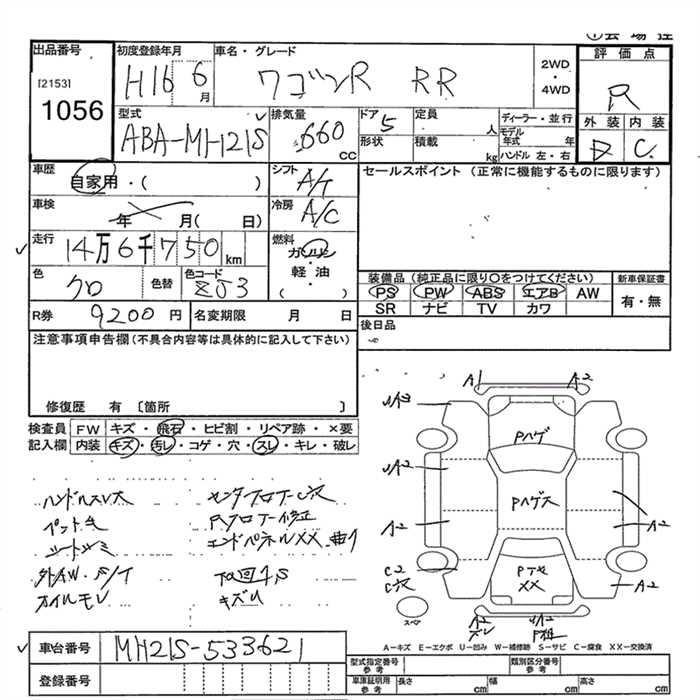 出品番号
[2153]
1056
初度登録年月
H16 6月
車名・グレード
ワゴンR RR
2WD
・
4WD
評価点
R
外装 内装
D C
型式
ABA-MH21S
排気量
660
cc
ドア
5
形状
定員
人
積載
kg
ディーラー・並行
モデル年式 年
ハンドル 左・右
車歴
自家用・( )
シフト
A/T
セールスポイント (正常に機能するものに限ります)
車検
年 月( 日)
冷房
A/C
走行
14万6千750km
燃料
ガソリン
軽・油
( )
色
クロ
色替
色コード
ZJ3
装備品 (純正品に限り○をつけてください)
新車保証書
PS PW ABS エアB AW
有・無
SR ナビ TV カワ
R券 9200円
名変期限 月 日
後日品
注意事項申告欄(不具合内容等は具体的に記入して下さい)
修復歴 有 〔箇所 〕
検査員 FW キズ・飛石・ヒビ割・リペア跡・×要
記入欄 内装 キズ・汚レ・コゲ・穴・スレ・キレ・破レ
ハンドルスレ大
センタフロアー穴
ペット毛
Rフロアー修正
シートシミ
エンドパネルXX 曲り
外AW・S/T
下回りS
オイルモレ
キズ
A1 A2
A2
Pハゲ
A2
Pハゲ大
A2 A2
C2
穴
XX
A2
スペア
A2 A2
A−キズ E−エクボ U−凹み W−補修跡 S−サビ C−腐食 XX−交換済
車台番号 MH21S-533621
登録番号
型式指定番号
参考
類別区分番号
参考
車庫証明用
参考
長さ cm 幅 cm 高さ cm